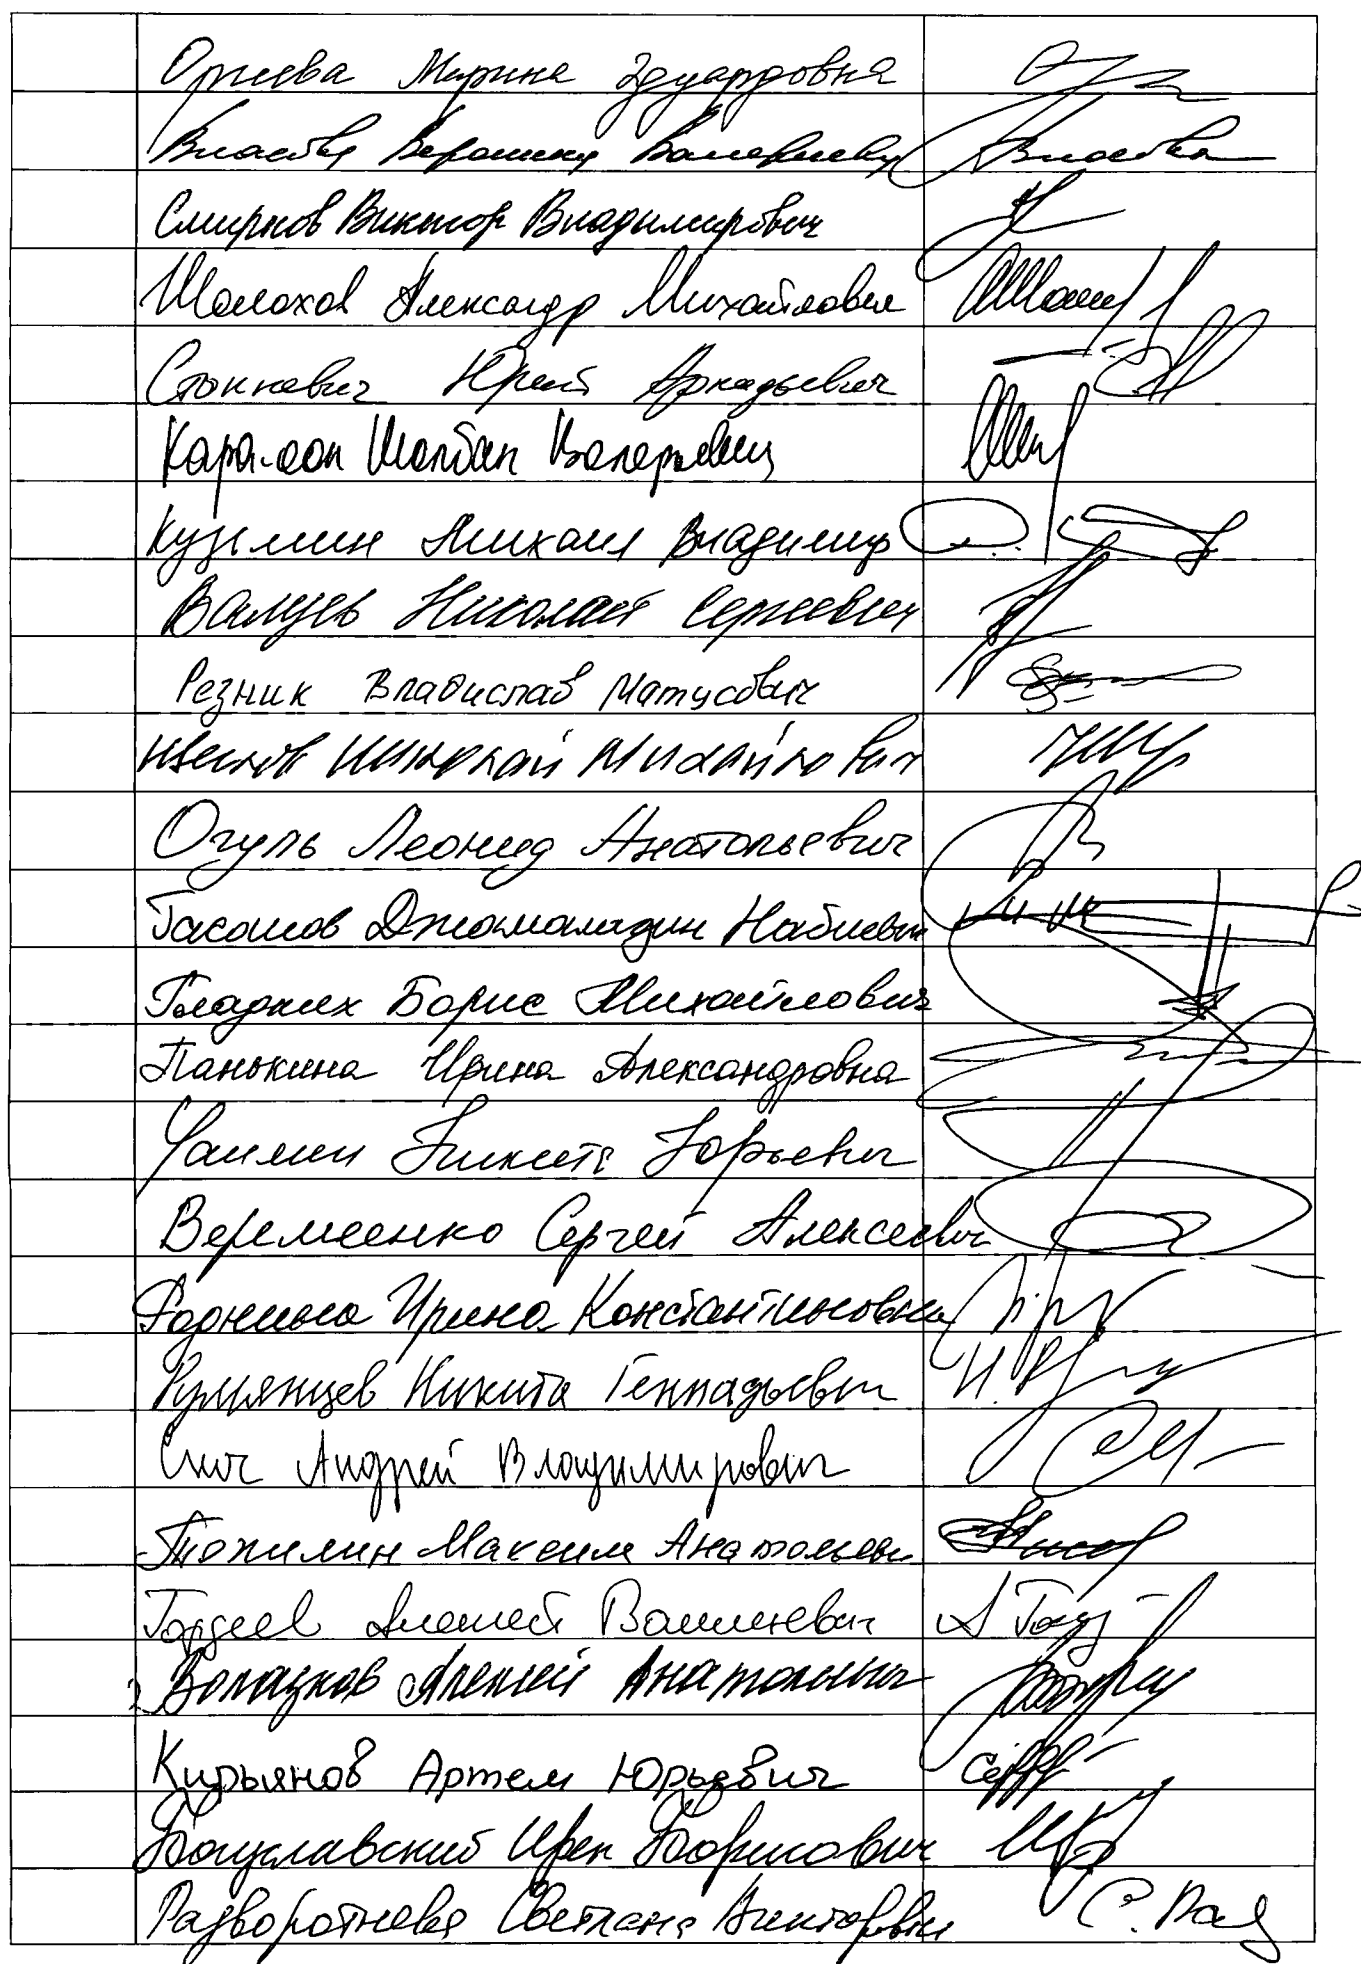 Оргеева Марина Эдуардовна
Власова Вероника Валерьевна Власова
Смирнов Виктор Владимирович
Шолохов Александр Михайлович
Станкевич Юрий Аркадьевич
Кара-оол Шолбан Валерьевич
Кузьмин Михаил Владимир
Валуев Николай Сергеевич
Резник Владислав Матусович
Цветков Николай Михайлович
Огуль Леонид Анатольевич
Гасанов Джамаладин Набиевич
Гладких Борис Михайлович
Панькина Ирина Александровна
Чаплин Никита Юрьевич
Веремеенко Сергей Алексеевич
Роднина Ирина Константиновна
Румянцев Никита Геннадьевич
Скоч Андрей Владимирович
Топилин Максим Анатольеви
Гордеев Алексей Васильевич
Волоцков Алексей Анатольевич
Кирьянов Артем Юрьевич
Богуславский Ирек Борисович
Разворотнева Светлана Викторовна